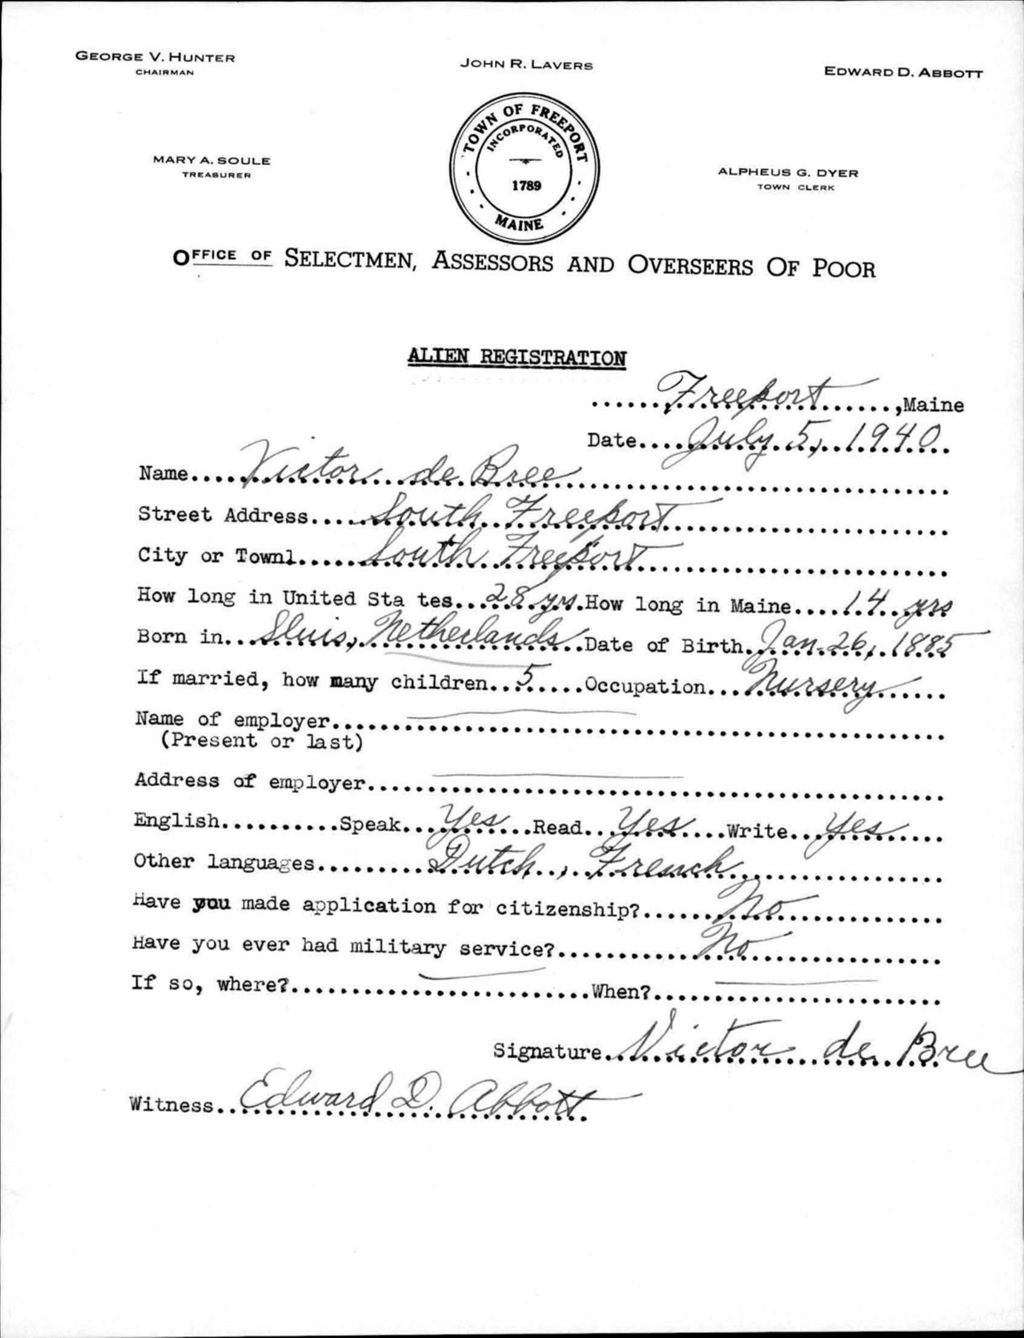 GEORGE V. HUNTER
CHAIRMAN
JOHN R. LAVERS
EDWARD D. ABBOTT
MARY A. SOULE
TREASURER
TOWN OF FREEPORT
INCORPORATED
1789
MAINE
ALPHEUS G. DYER
TOWN CLERK
OFFICE OF SELECTMEN, ASSESSORS AND OVERSEERS OF POOR
ALIEN REGISTRATION
Freeport, Maine
Date July 5, 1940.
Name Victor de Bree
Street Address South Freeport
City or Townl South Freeport
How long in United Sta tes 28 yrs. How long in Maine 14 yrs
Born in Sluis, Netherlands Date of Birth Jan. 26, 1885
If married, how many children 5 Occupation Nursery
Name of employer
(Present or last)
Address of employer
English Speak Yes Read Yes Write Yes
Other languages Dutch, French
Have you made application for citizenship? No
Have you ever had military service? No
If so, where? When?
Signature Victor de Bree
Witness Edward D. Abbott